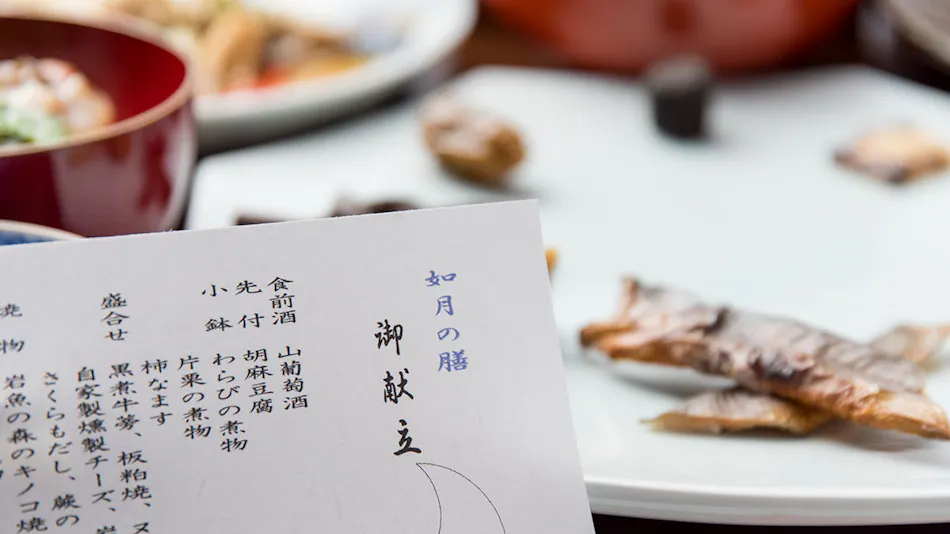 如月の膳
御献立
食前酒 山葡萄酒
先付 胡麻豆腐
小鉢 わらびの煮物
片栗の煮物
柿なます
盛合せ 黒煮牛蒡、板粕焼、ヌ
自家製燻製チーズ、岩
さくらもだし、蕨の
焼物 岩魚の森のキノコ焼